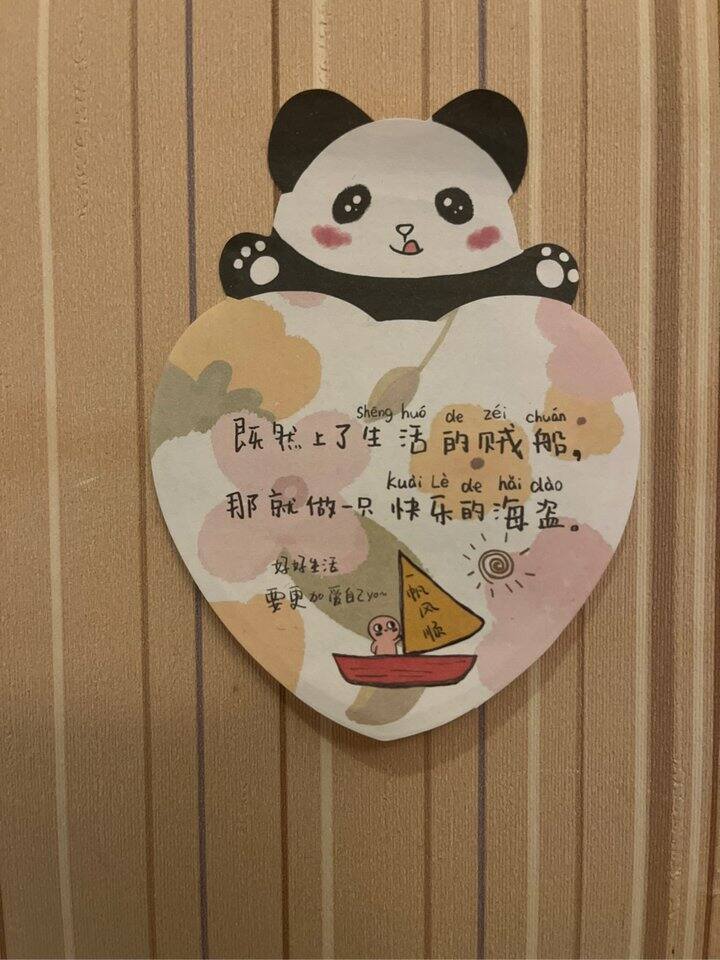 Shēng huó de zéi chuán
既然上了生活的贼船，
kuài Lè de hǎi dào
那就做一只快乐的海盗。
好好生活
要更加爱自己yo~
一帆风顺